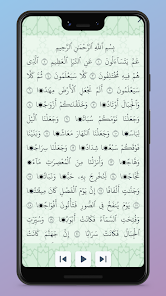 بِسْمِ ٱللَّهِ ٱلرَّحْمَٰنِ ٱلرَّحِيمِ
عَمَّ يَتَسَآءَلُونَ ۝ عَنِ ٱلنَّبَإِ ٱلْعَظِيمِ ۝ ٱلَّذِى
هُمْ فِيهِ مُخْتَلِفُونَ ۝ كَلَّا سَيَعْلَمُونَ ۝ ثُمَّ كَلَّا
سَيَعْلَمُونَ ۝ أَلَمْ نَجْعَلِ ٱلْأَرْضَ مِهَٰدًا ۝
وَٱلْجِبَالَ أَوْتَادًا ۝ وَخَلَقْنَٰكُمْ أَزْوَٰجًا ۝
وَجَعَلْنَا نَوْمَكُمْ سُبَاتًا ۝ وَجَعَلْنَا ٱلَّيْلَ
لِبَاسًا ۝ وَجَعَلْنَا ٱلنَّهَارَ مَعَاشًا ۝ وَبَنَيْنَا
فَوْقَكُمْ سَبْعًا شِدَادًا ۝ وَجَعَلْنَا سِرَاجًا
وَهَّاجًا ۝ وَأَنزَلْنَا مِنَ ٱلْمُعْصِرَٰتِ مَآءً
ثَجَّاجًا ۝ لِّنُخْرِجَ بِهِۦ حَبًّا وَنَبَاتًا ۝
وَجَنَّٰتٍ أَلْفَافًا ۝ إِنَّ يَوْمَ ٱلْفَصْلِ كَانَ مِيقَٰتًا ۝
يَوْمَ يُنفَخُ فِى ٱلصُّورِ فَتَأْتُونَ أَفْوَاجًا ۝
وَفُتِحَتِ ٱلسَّمَآءُ فَكَانَتْ أَبْوَٰبًا ۝ وَسُيِّرَتِ
ٱلْجِبَالُ فَكَانَتْ سَرَابًا ۝ إِنَّ جَهَنَّمَ كَانَتْ